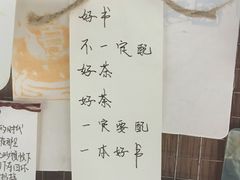 好书
不一定配
好茶
好茶
一定要配
一本好书